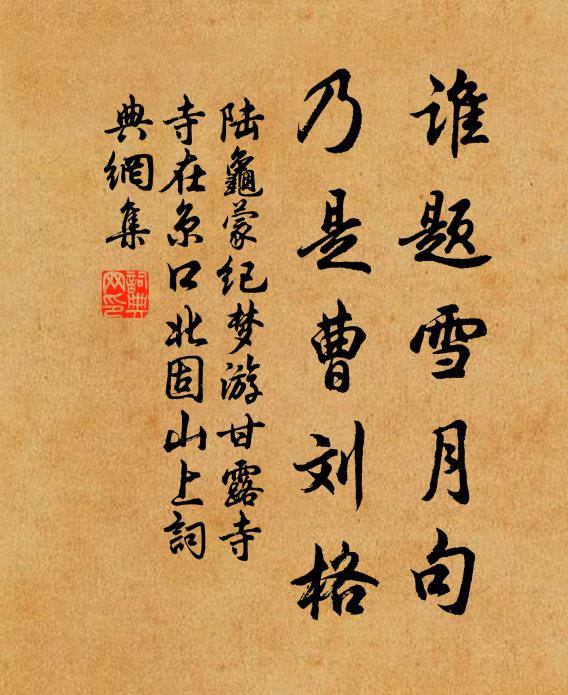 谁题雪月句
乃是曹刘格
陆龜蒙纪梦游甘露寺
寺在京口北固山上詞
典網集
詞典网印